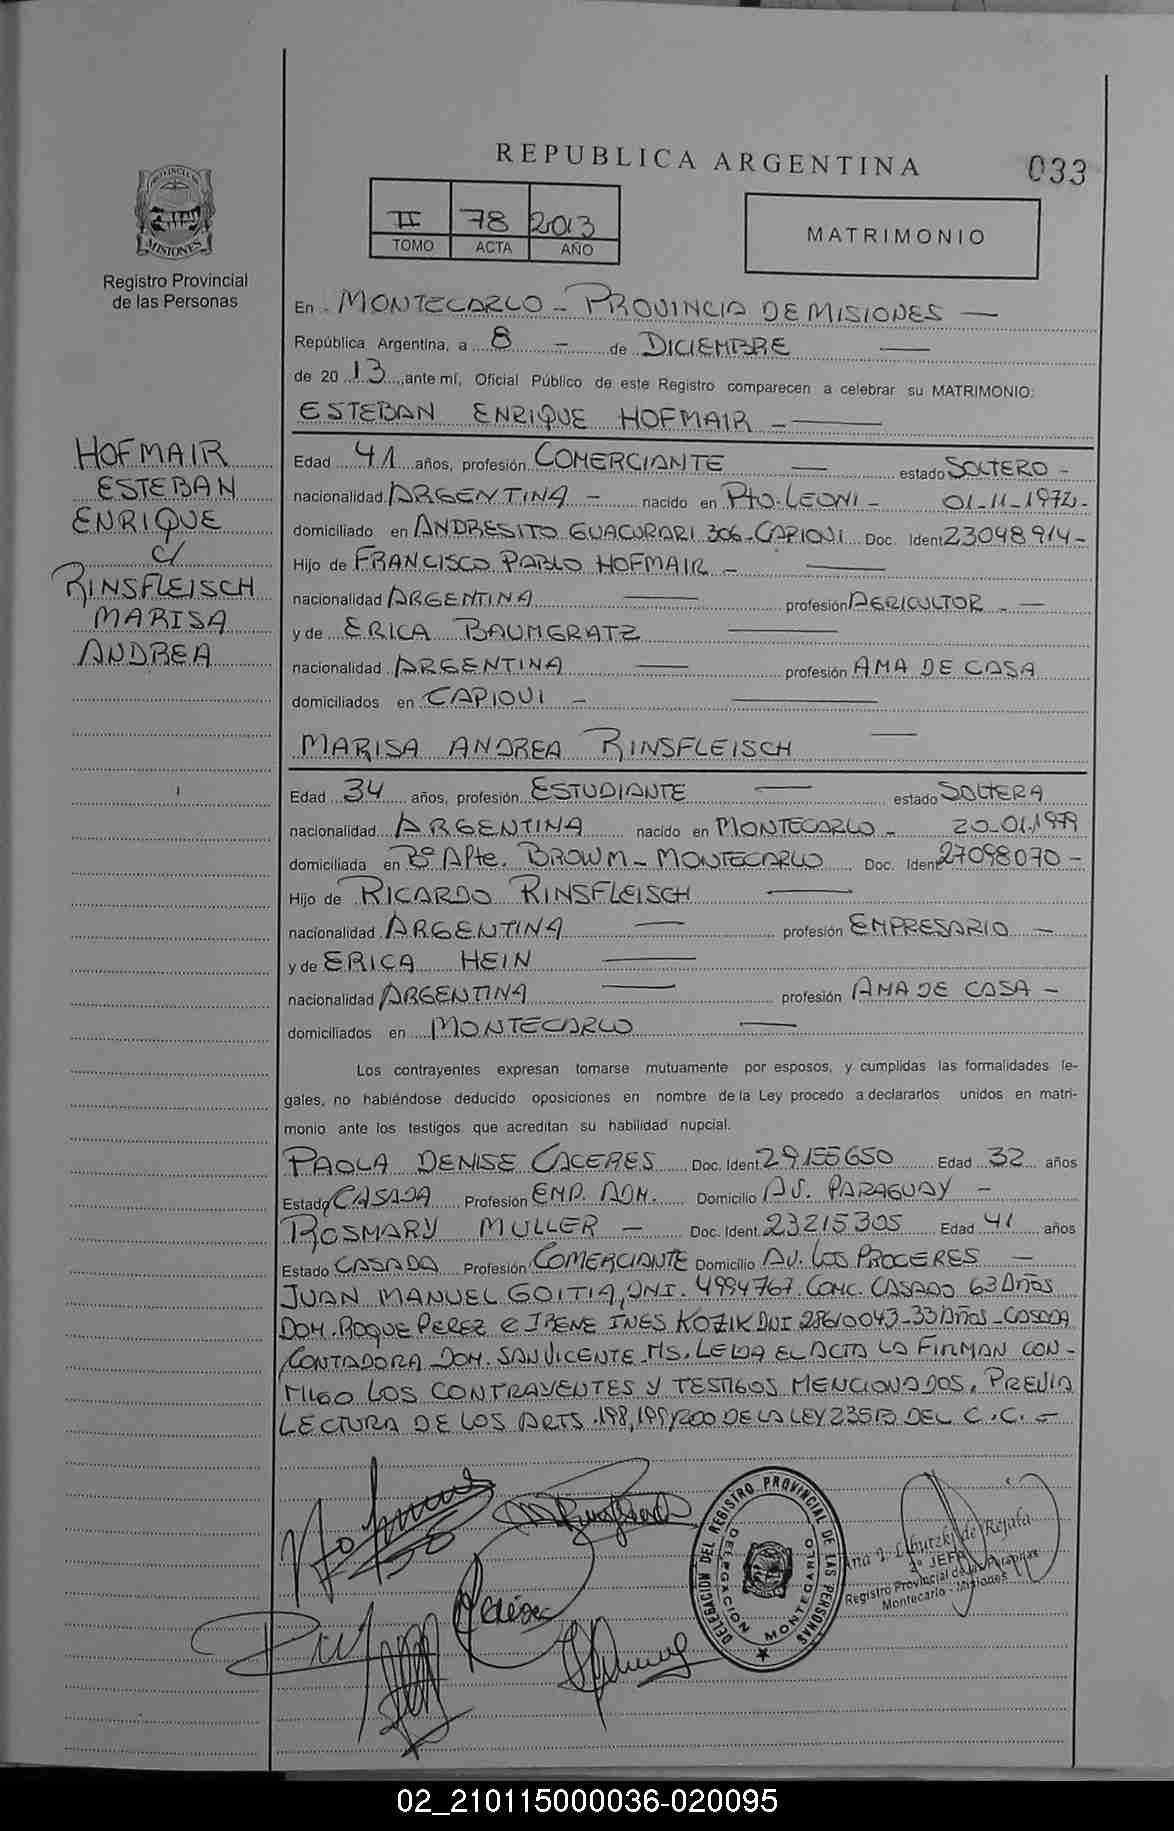 REPUBLICA ARGENTINA
033
PROVINCIA
MISIONES
Registro Provincial
de las Personas
II 78 2013
TOMO ACTA AÑO
MATRIMONIO
En MONTECARLO - PROVINCIA DE MISIONES —
República Argentina, a 8 - de DICIEMBRE —
de 20 13, ante mí, Oficial Público de este Registro comparecen a celebrar su MATRIMONIO:
ESTEBAN ENRIQUE HOFMAIR - —
HOFMAIR
ESTEBAN
ENRIQUE
c/
RINSFLEISCH
MARISA
ANDREA
Edad 41 años, profesión COMERCIANTE — estado SOLTERO -
nacionalidad ARGENTINA - nacido en Pto. LEONI - 01-11-1972-
domiciliado en ANDRESITO GUACURARI 306-CAPIOVI Doc. Ident 23048914-
Hijo de FRANCISCO PABLO HOFMAIR - —
nacionalidad ARGENTINA — profesión AGRICULTOR - —
y de ERICA BAUMGRATZ —
nacionalidad ARGENTINA — profesión AMA DE CASA
domiciliados en CAPIOVI - —
MARISA ANDREA RINSFLEISCH —
Edad 34 años, profesión ESTUDIANTE — estado SOLTERA
nacionalidad ARGENTINA nacido en MONTECARLO - 20-01-1979
domiciliada en Bº Alte. BROWM - MONTECARLO Doc. Ident 27098070-
Hijo de RICARDO RINSFLEISCH —
nacionalidad ARGENTINA — profesión EMPRESARIO -
y de ERICA HEIN —
nacionalidad ARGENTINA — profesión AMA DE CASA -
domiciliados en MONTECARLO —
Los contrayentes expresan tomarse mutuamente por esposos, y cumplidas las formalidades le-
gales, no habiéndose deducido oposiciones en nombre de la Ley procedo a declararlos unidos en matri-
monio ante los testigos que acreditan su habilidad nupcial.
PAOLA DENISE CACERES Doc. Ident. 29155650 Edad 32 años
Estado CASADA Profesión EMP. ADM. Domicilio AV. PARAGUAY -
ROSMARY MULLER - Doc. Ident. 23215305 Edad 41 años
Estado CASADA Profesión COMERCIANTE Domicilio AV. LOS PROCERES -
JUAN MANUEL GOITIA, DNI. 4994767. COMC. CASADO 63 Años
DOM. ROQUE PEREZ e IRENE INES KOZIK DNI 28610043-33 Años-CASADA
CONTADORA DOM. SAN VICENTE. MS. LEIDA EL ACTA LA FIRMAN CON-
MIGO LOS CONTRAYENTES Y TESTIGOS MENCIONADOS. PREVIA
LECTURA DE LOS ARTS. 198, 199, 200 DE LA LEY 23515 DEL C.C. -
DELEGACION DEL REGISTRO PROVINCIAL DE LAS PERSONAS
DELEGACION MONTECARLO
Ana I. de Rejala
2º JEFE
Registro Provincial de las Personas
Montecarlo - Misiones
02_210115000036-020095